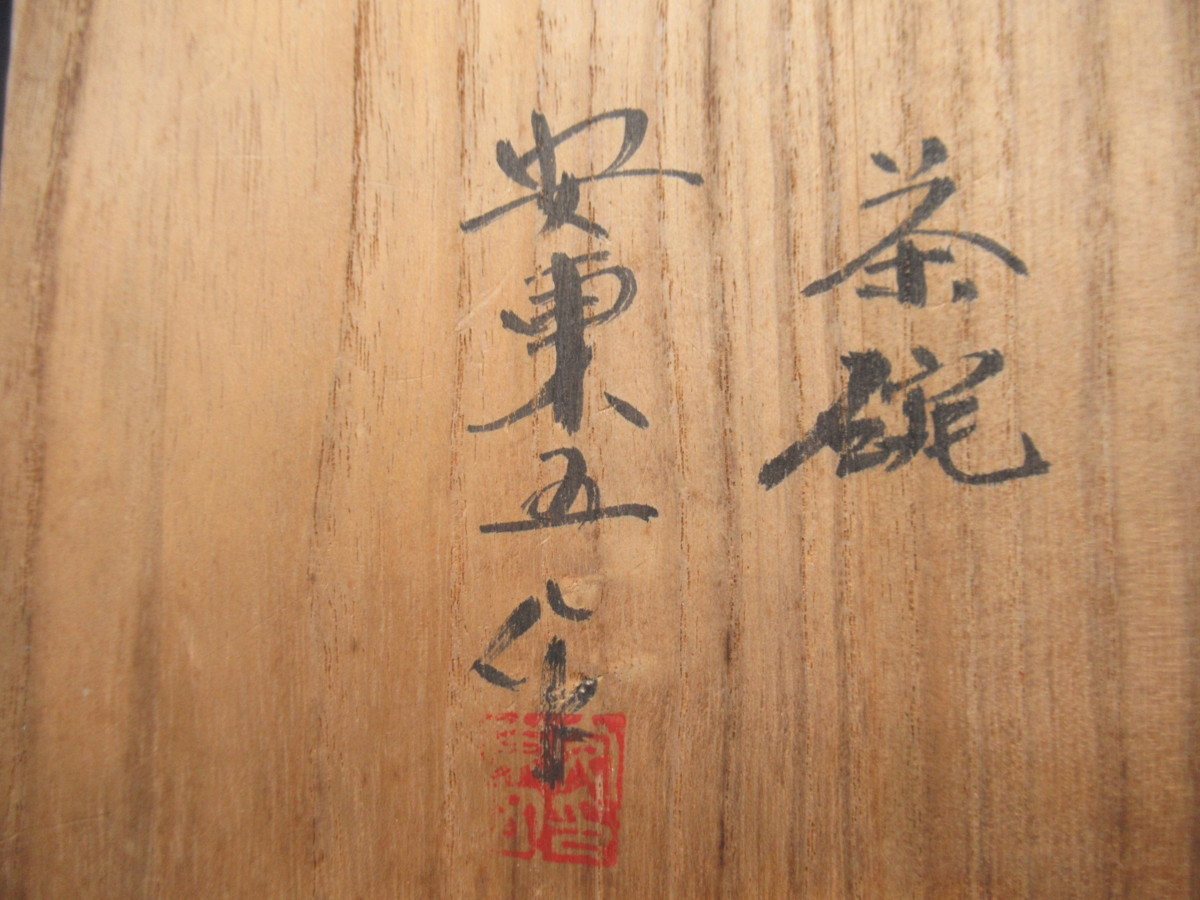 茶碗
安東五作